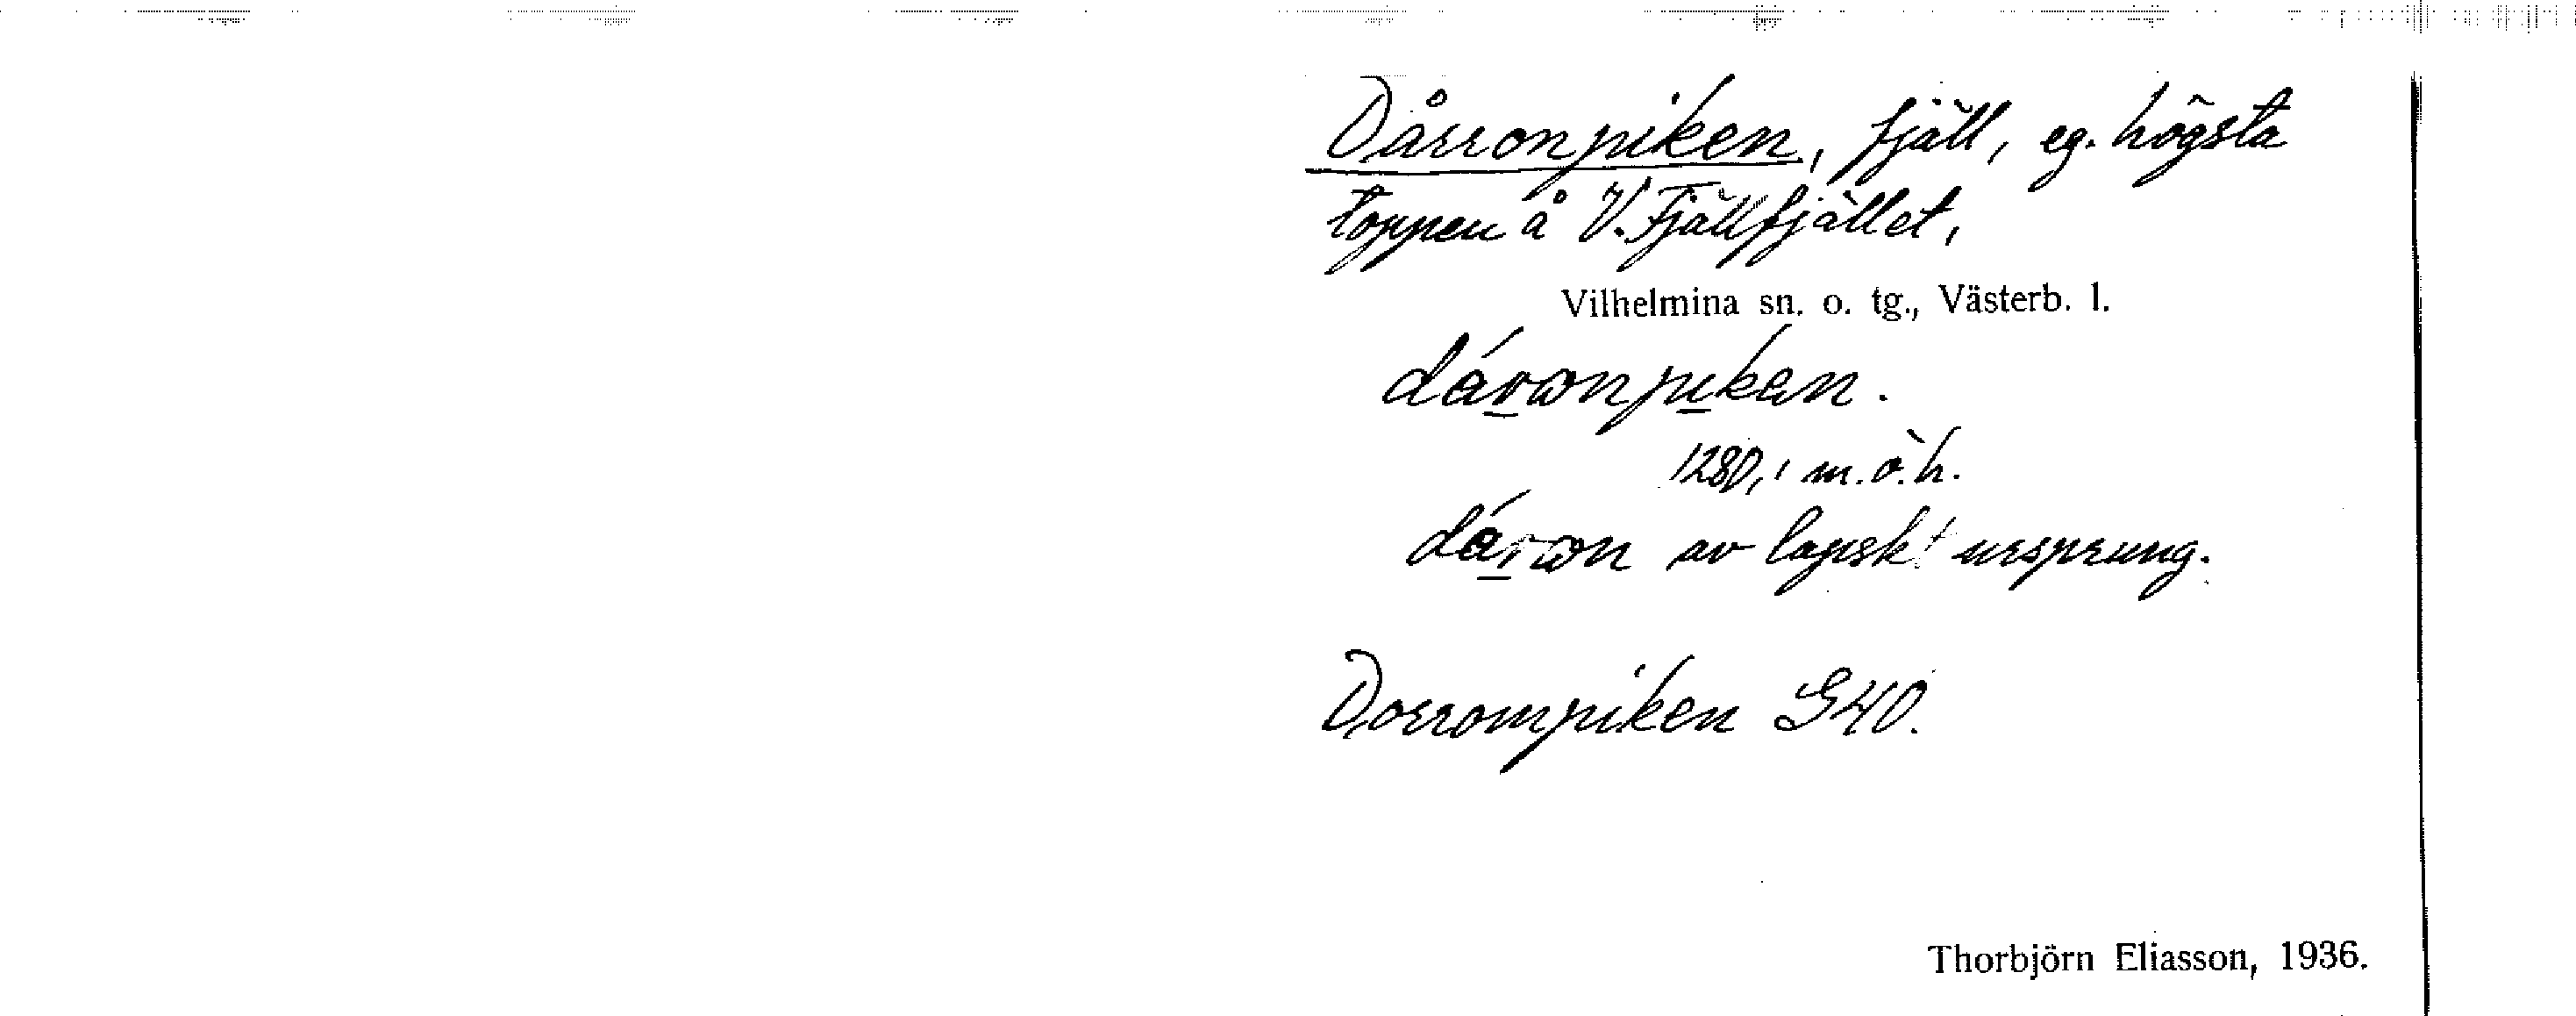 Dårronpiken, fjäll, eg. högsta
toppen å V. Fjällfjället,
Vilhelmina sn. o. tg., Västerb. l.
dáronpiken.
1280,1 m.ö.h.
dáron av lapskt ursprung.
Dorrompiken G40.
Thorbjörn Eliasson, 1936.